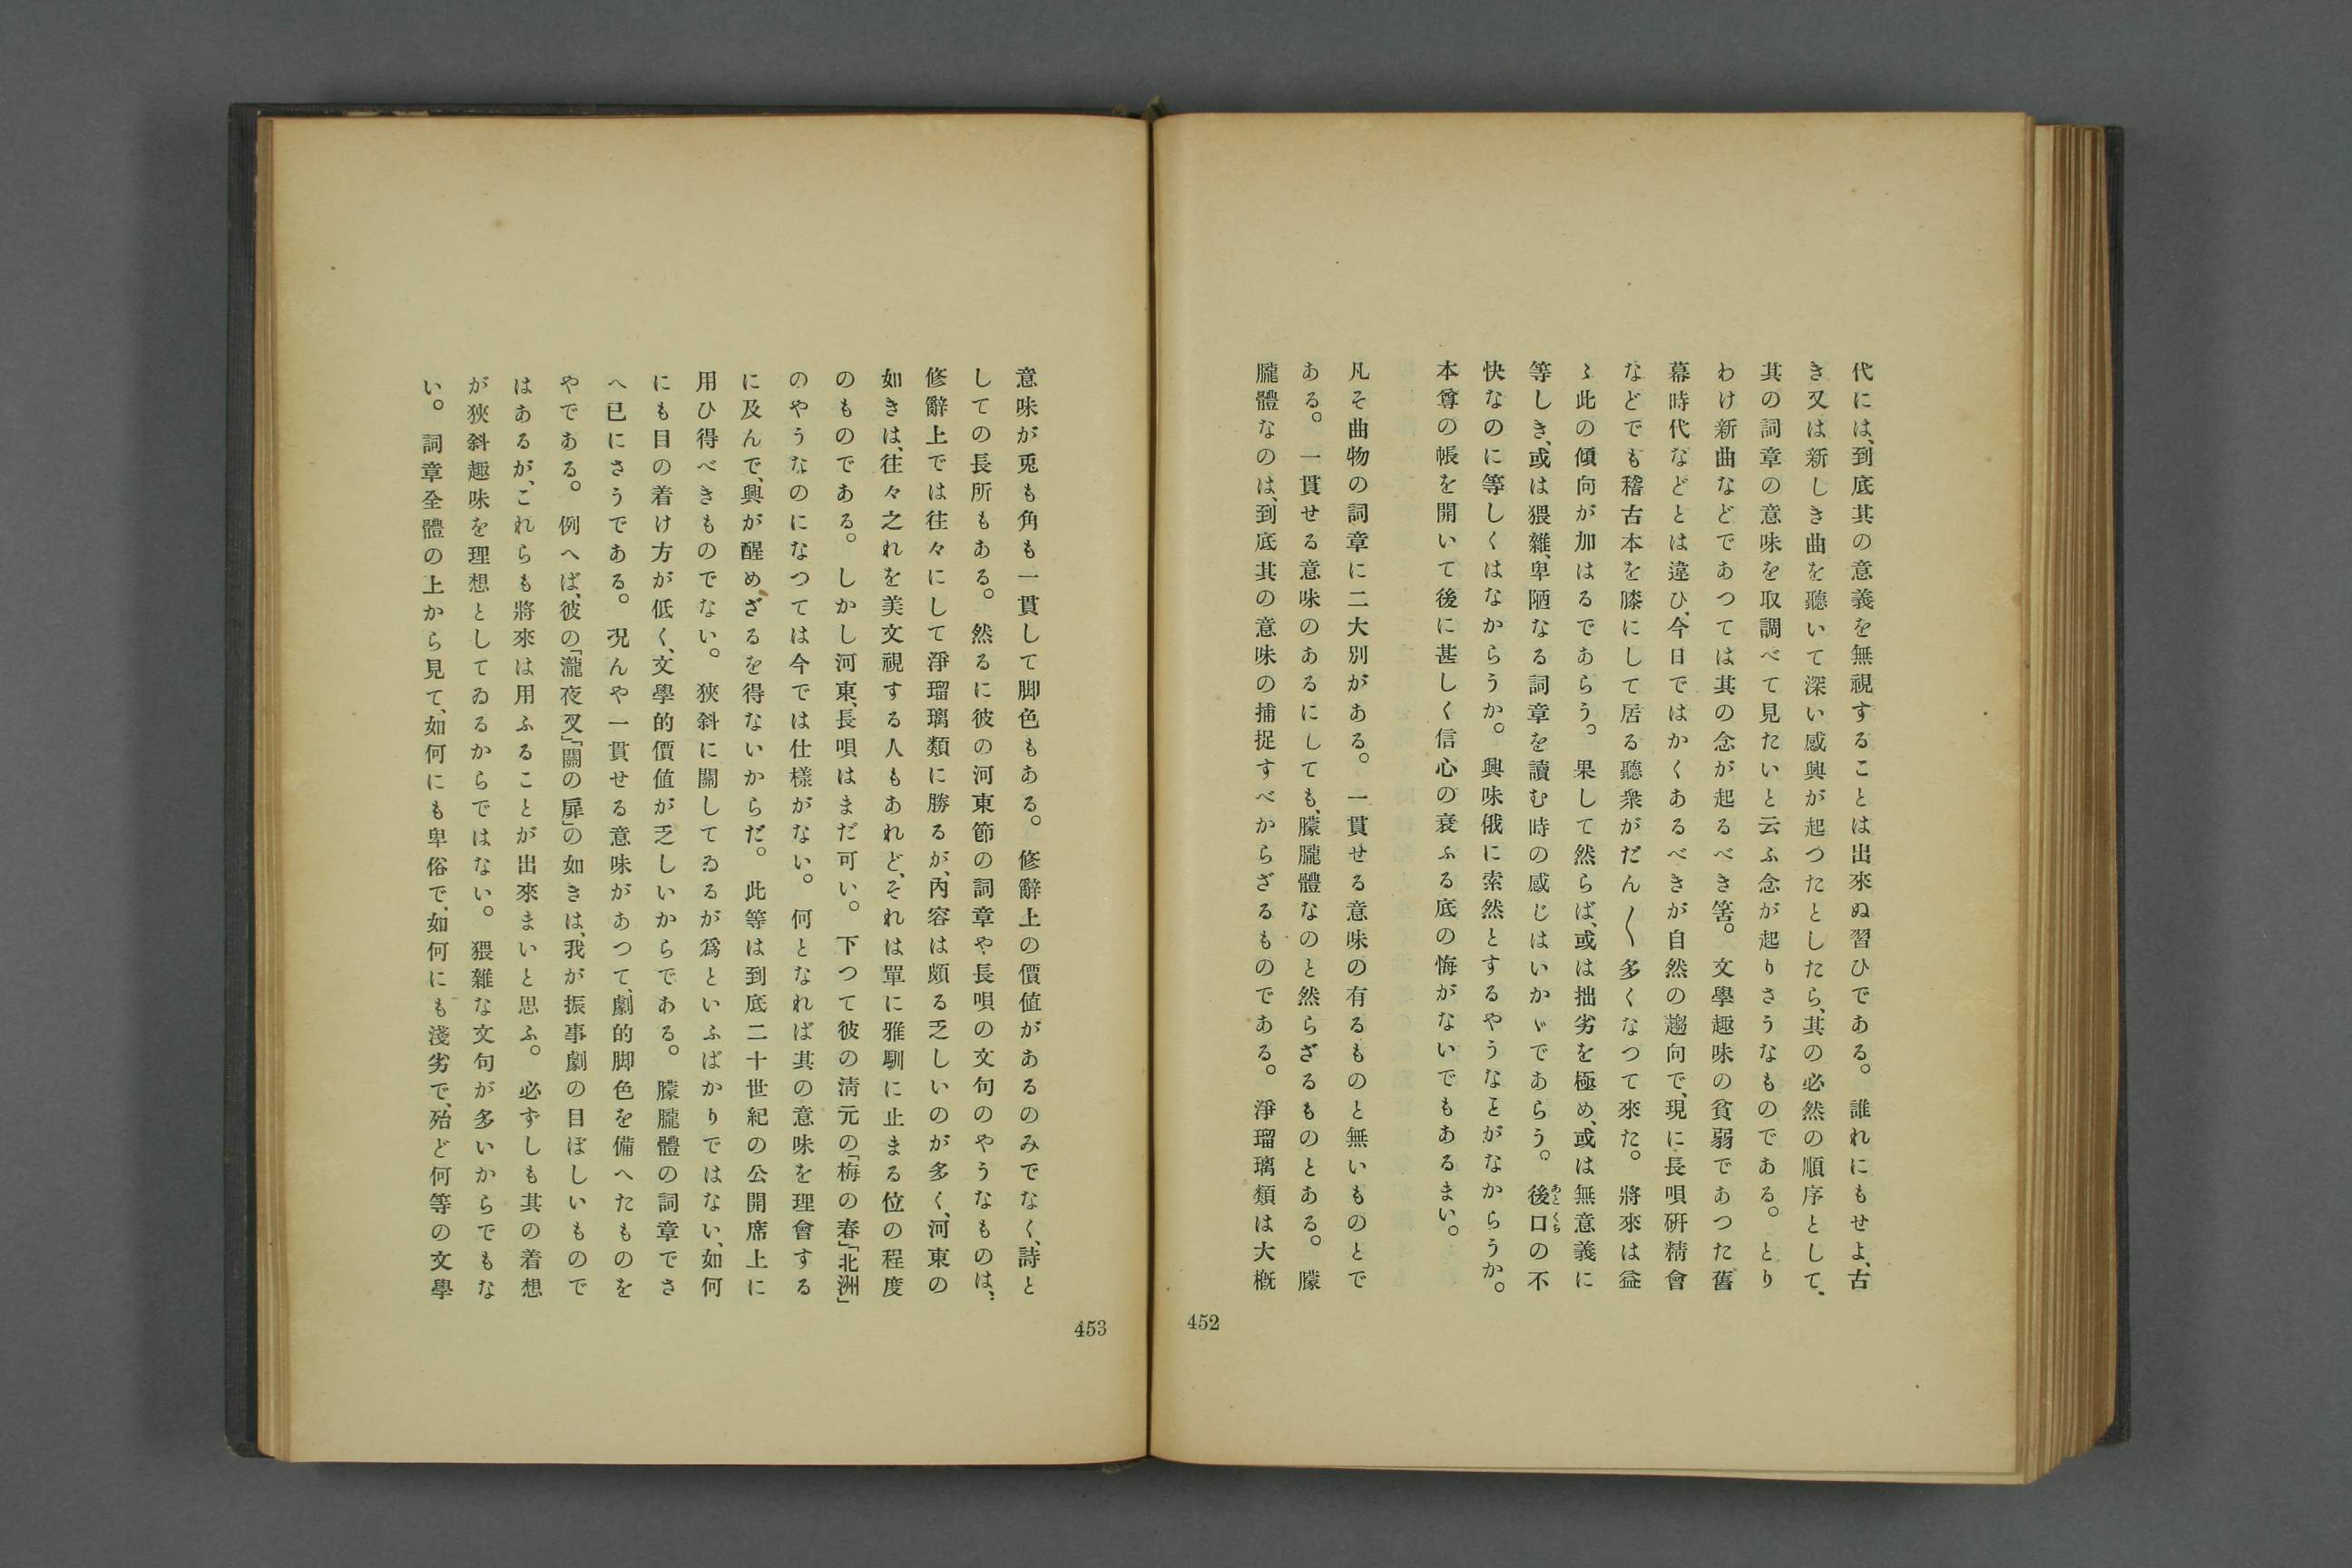 代には、到底其の意義を無視することは出來ぬ習ひである。誰れにもせよ、古
き又は新しき曲を聽いて深い感興が起つたとしたら、其の必然の順序として、
其の詞章の意味を取調べて見たいと云ふ念が起りさうなものである。とり
わけ新曲などであつては其の念が起るべき筈。文學趣味の貧弱であつた舊
幕時代などとは違ひ、今日ではかくあるべきが自然の趨向で、現に長唄硏精會
などでも稽古本を膝にして居る聽衆がだん〱多くなつて來た。將來は益
〻此の傾向が加はるであらう。果して然らば、或は拙劣を極め、或は無意義に
等しき、或は猥雜、卑陋なる詞章を讀む時の感じはいかゞであらう。後口の不
あとくち
快なのに等しくはなからうか。興味俄に索然とするやうなとがなからうか。
本尊の帳を開いて後に甚しく信心の衰ふる底の悔がないでもあるまい。
凡そ曲物の詞章に二大別がある。一貫せる意味の有るものと無いものとで
ある。一貫せる意味のあるにしても、朦朧體なのと然らざるものとある。朦
朧體なのは、到底其の意味の捕捉すべからざるものである。淨瑠璃類は大槪
452
意味が兎も角も一貫して脚色もある。修辭上の價値があるのみでなく、詩と
しての長所もある。然るに彼の河東節の詞章や長唄の文句のやうなものは、
修辭上では往々にして淨瑠璃類に勝るが、內容は頗る乏しいのが多く、河東の
如きは、往々之れを美文視する人もあれど、それは單に雅馴に止まる位の程度
のものである。しかし河東、長唄はまだ可い。下つて彼の淸元の「梅の春」「北洲」
のやうなのになつては今では仕樣がない。何となれば其の意味を理會する
に及んで、興が醒めざるを得ないからだ。此等は到底二十世紀の公開席上に
用ひ得べきものでない。狹斜に關してゐるが爲といふばかりではない、如何
にも目の着け方が低く、文學的價値が乏しいからである。朦朧體の詞章でさ
へ已にさうである。況んや一貫せる意味があつて、劇的脚色を備へたものを
やである。例へば、彼の「瀧夜叉」「關の扉」の如きは、我が振事劇の目ぼしいもので
はあるが、これらも將來は用ふることが出來まいと思ふ。必ずしも其の着想
が狹斜趣味を理想としてゐるからではない。猥雜な文句が多いからでもな
い。詞章全體の上から見て、如何にも卑俗で、如何にも淺劣で、殆ど何等の文學
453